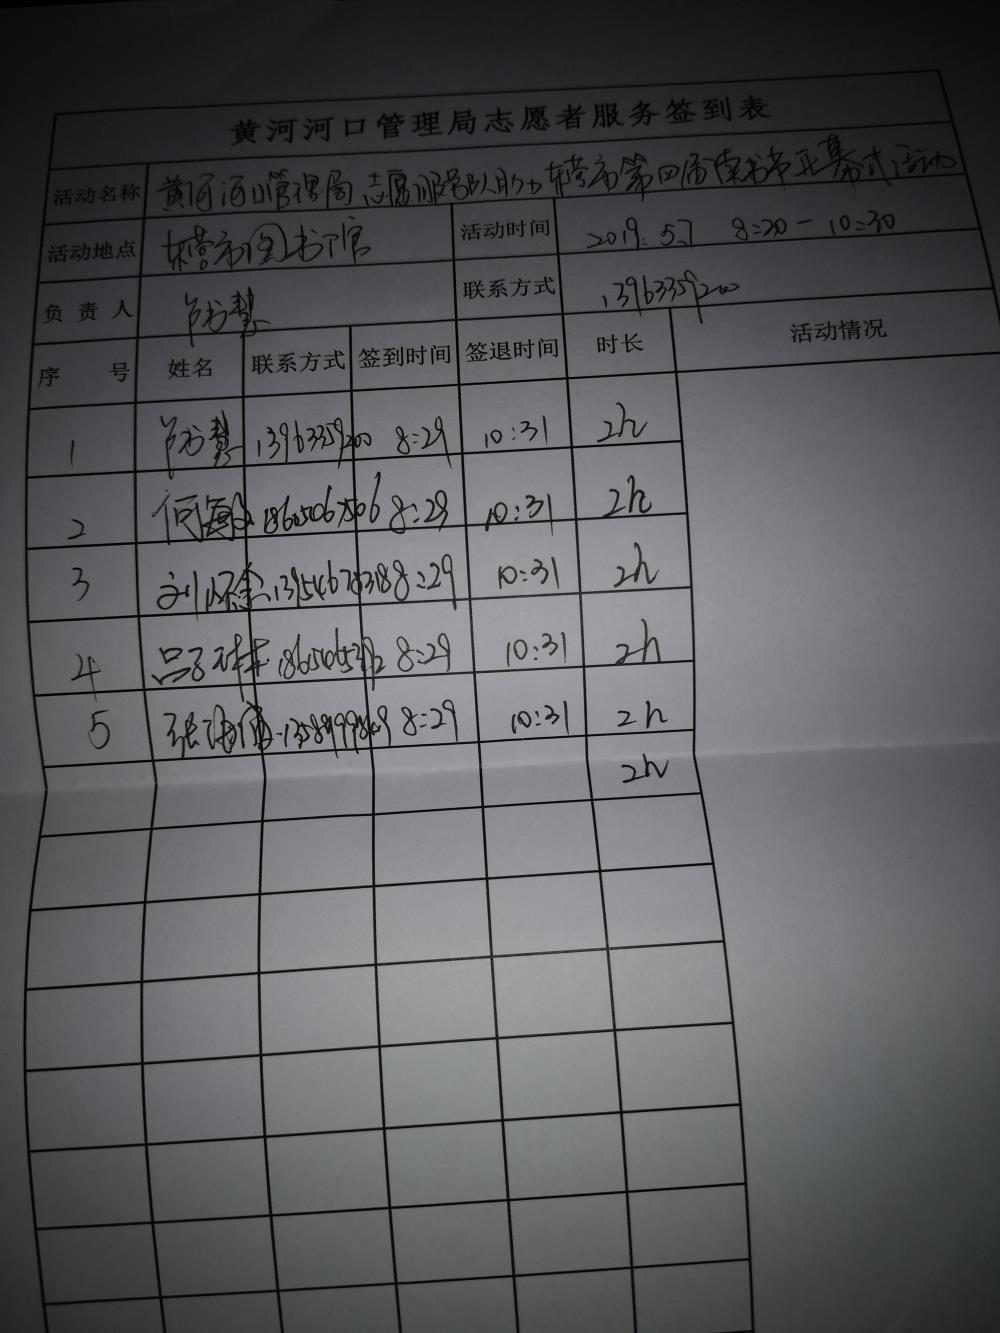 黄河河口管理局志愿者服务签到表
活动名称 黄河河口管理局志愿服务队助力东营市第四届读书节开幕式活动
活动地点 东营市图书馆 活动时间 2019.5.7 8:20-10:30
负责人 联系方式 13963359200
序号 姓名 联系方式 签到时间 签退时间 时长 活动情况
1 13963359200 8:29 10:31 2h
2 18605067506 8:29 10:31 2h
3 8:29 10:31 2h
4 8:29 10:31 2h
5 8:29 10:31 2h
2h